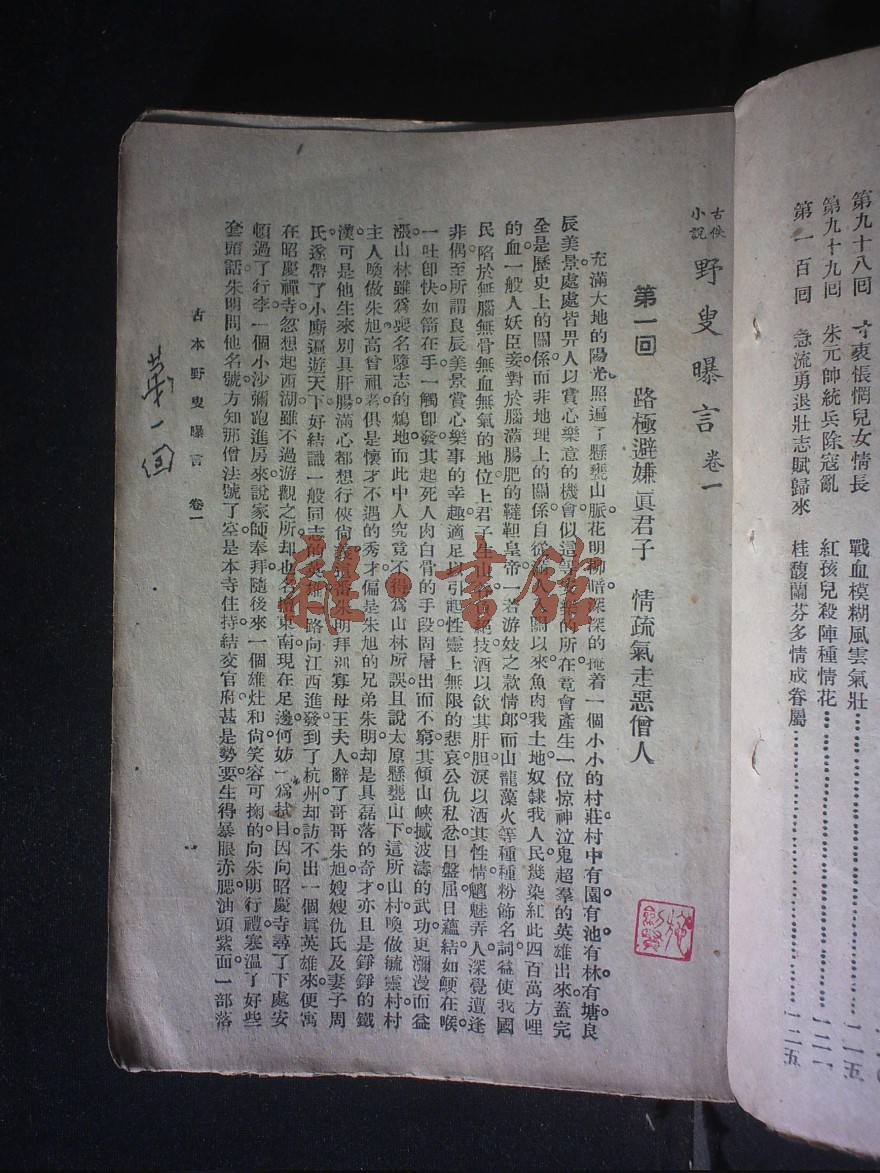 第九十八回　寸衷悵惘兒女情長　戰血模糊風雲氣壯………一一五
第九十九回　朱元帥統兵除寇亂　紅孩兒殺陣種情花………一二一
第一百回　急流勇退壯志賦歸來　桂馥蘭芬多情成眷屬………一二五
古佚小説　野叟曝言　卷一
第一回　路極避嫌眞君子　情疏氣走惡僧人
充滿大地的陽光。照遍了懸甕山脈。花明柳暗。深深的掩着一個小小的村莊。村中有園。有池。有林。有塘。良
辰美景。處處皆畀人以賞心樂意的機會。似這等安樂的所在。竟會產生一位惊神泣鬼超羣的英雄出來。蓋完
全是歷史上的關係。而非地理上的關係。自從人入關以來。魚肉我土地。奴隸我人民。幾染紅此四百萬方哩
的血。一般人妖臣妾。對於腦滿腸肥的韃靼皇帝。一若游妓之款情郎。而山龍藻火等種種粉飾名詞。益使我國
民陷於無腦無骨無血無氣的地位上。君子生山技。酒以飲其肝胆。淚以洒其性情。魑魅弄人。深覺遭逢
非偶。至所謂良辰美景賞心樂事的幸趣。適足以引起性靈上無限的悲哀。公仇私忿。日盤屈日蘊結。如鯁在喉。
一吐卽快。如箭在手。一觸卽發。其起死人肉白骨的手段。固層出而不窮。其傾山峽撼波濤的武功。更瀰漫而益
漲。山林雖爲喪名隳志的鴆地。而此中人究竟不得爲山林所誤。且說太原懸甕山下。這所山村。喚做毓靈村。村
主人喚做朱旭。高曾祖考。俱是懷才不遇的秀才。偏是朱旭的兄弟朱明。却是具磊落的奇才。亦且是錚錚的鐵
漢。可是他生來別具肝腸。滿心都想行俠尙義。這番朱明拜別寡母王夫人。辭了哥哥朱旭嫂嫂仇氏及妻子周
氏。遂帶了小廝遍遊天下。好結識一般同志的英雄。一路向江西進發。到了杭州。却訪不出一個眞英雄來。便寓
在昭慶禪寺。忽想起西湖雖不過游觀之所。却也名震東南。現在足邊。何妨一爲拭目。因向昭慶寺尋了下處。安
頓過了行李。一個小沙彌跑進房來。說家師奉拜。隨後來一個雄壯和尙。笑容可掬的向朱明行禮。寒溫了好些
套頭話。朱明問他名號。方知那僧法號了空。是本寺住持。結交官府。甚是勢要。生得暴眼赤腮。油頭紫面。一部落
古本野叟曝言　卷一
第一回
雜·書館